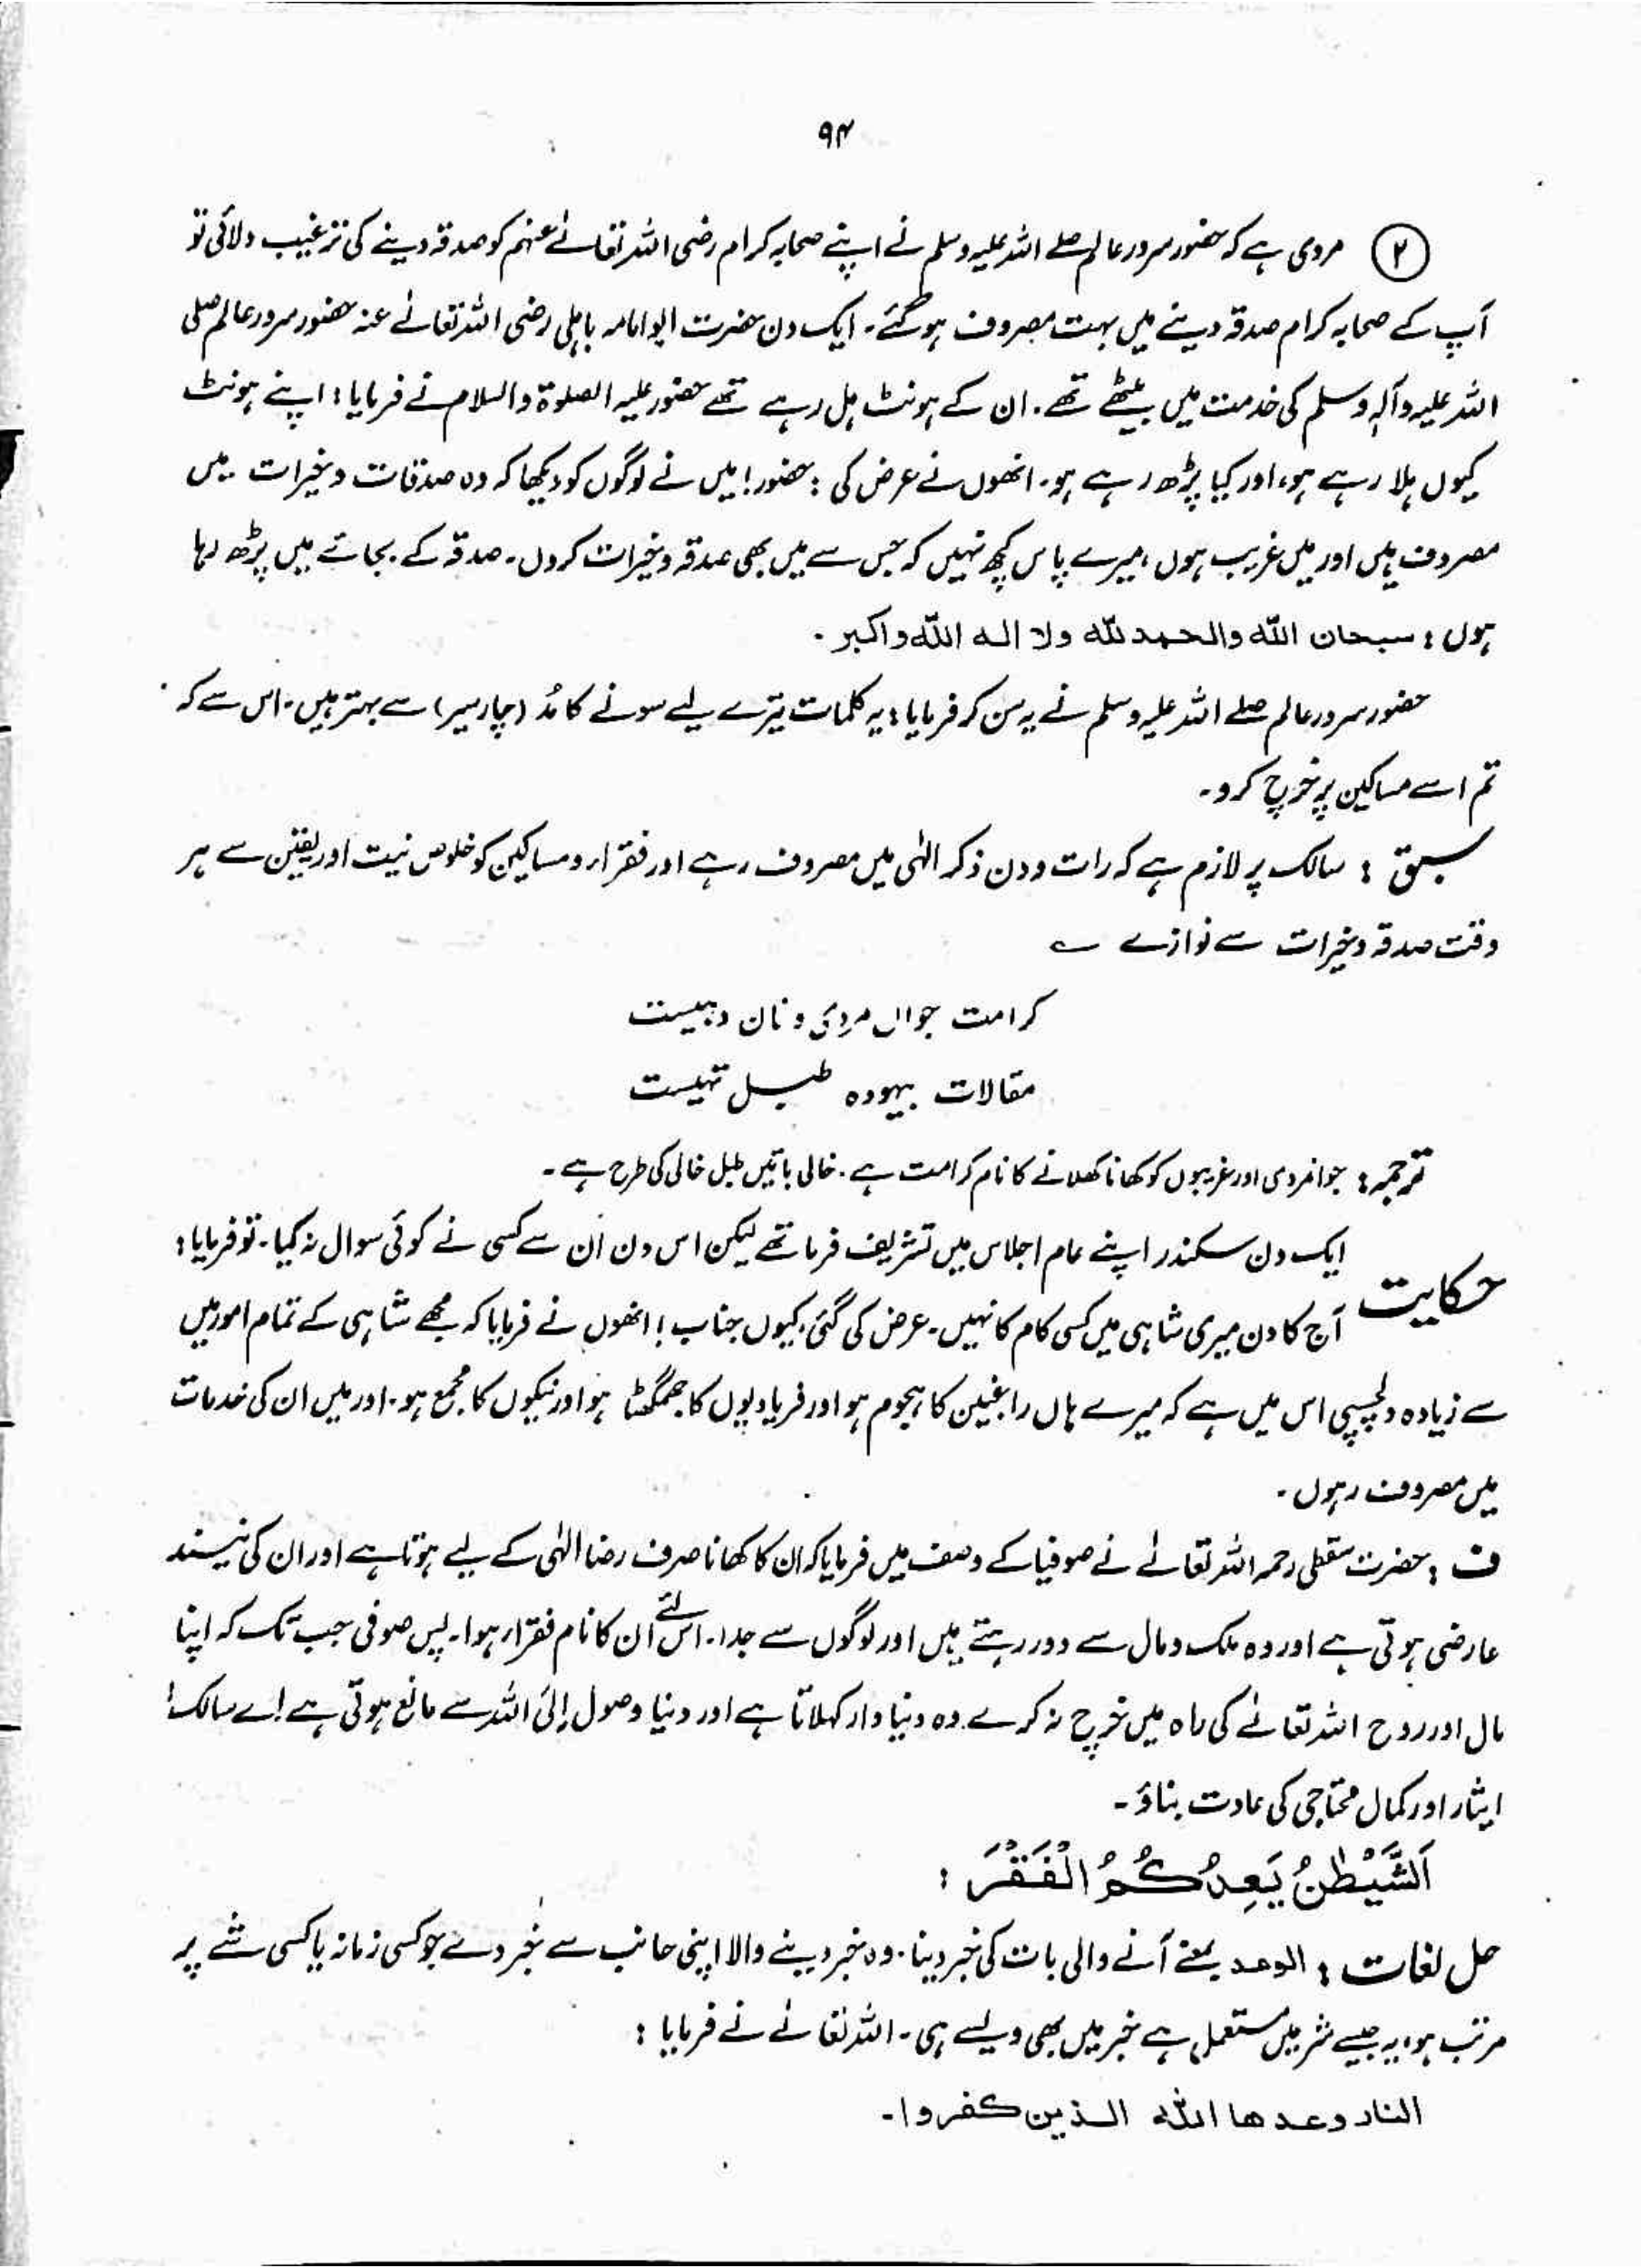 ۹۴
۲ مروی ہے کہ حضور سرور عالم صلے اللہ علیہ وسلم نے اپنے صحابہ کرام رضی اللہ تعالےٰ عنہم کو صدقہ دینے کی ترغیب دلائی تو
آپ کے صحابہ کرام صدقہ دینے میں بہت مصروف ہو گئے۔ ایک دن حضرت ابو امامہ باہلی رضی اللہ تعالےٰ عنہ حضور سرور عالم صلی
اللہ علیہ وآلہٖ وسلم کی خدمت میں بیٹھے تھے۔ ان کے ہونٹ ہل رہے تھے حضور علیہ الصلوۃ والسلام نے فرمایا: اپنے ہونٹ
کیوں ہلا رہے ہو، اور کیا پڑھ رہے ہو۔ انھوں نے عرض کی: حضور! میں نے لوگوں کو دیکھا کہ وہ صدقات وخیرات میں
مصروف ہیں اور میں غریب ہوں، میرے پاس کچھ نہیں کہ جس سے میں بھی صدقہ وخیرات کروں۔ صدقہ کے بجائے میں پڑھ رہا
ہوں: سبحان اللہ والحمد للہ ولا الہ اللہ واکبر۔
حضور سرور عالم صلے اللہ علیہ وسلم نے یہ سن کر فرمایا: یہ کلمات تیرے لیے سونے کا مُد (چار سیر) سے بہتر ہیں۔ اس سے کہ
تم اسے مساکین پر خرچ کرو۔
سبق: سالک پر لازم ہے کہ رات و دن ذکر الٰہی میں مصروف رہے اور فقراء ومساکین کو خلوص نیت اور یقین سے ہر
وقت صدقہ وخیرات سے نوازے ؎
کرامت جواں مردی و نان دہیست
مقالات بیہودہ طبل تہیست
ترجمہ: جوانمردی اور غریبوں کو کھانا کھلانے کا نام کرامت ہے۔ خالی باتیں طبل خالی کی طرح ہے۔
حکایت ایک دن سکندر اپنے عام اجلاس میں تشریف فرما تھے لیکن اس دن ان سے کسی نے کوئی سوال نہ کیا۔ تو فرمایا:
آج کا دن میری شاہی میں کسی کام کا نہیں۔ عرض کی گئی، کیوں جناب! انھوں نے فرمایا کہ مجھے شاہی کے تمام امور میں
سے زیادہ دلچسپی اس میں ہے کہ میرے ہاں راغبین کا ہجوم ہو اور فریادیوں کا جمگھٹا ہو اور نیکوں کا مجمع ہو۔ اور میں ان کی خدمات
میں مصروف رہوں۔
ف: حضرت سقطی رحمہ اللہ تعالےٰ نے صوفیا کے وصف میں فرمایا کہ ان کا کھانا صرف رضا الٰہی کے لیے ہوتا ہے اور ان کی نیند
عارضی ہوتی ہے اور وہ ملک ومال سے دور رہتے ہیں اور لوگوں سے جدا۔ اس لئے ان کا نام فقراء ہوا۔ پس صوفی جب تک کہ اپنا
مال اور روح اللہ تعالےٰ کی راہ میں خرچ نہ کرے وہ دنیا دار کہلاتا ہے اور دنیا وصول اِلیَ اللہ سے مانع ہوتی ہے! اے سالک!
ایثار اور کمال محتاجی کی عادت بناؤ۔
اَلشَّیْطٰنُ یَعِدُکُمُ الْفَقْرَ:
حل لغات: الوعد بمعنے آنے والی بات کی خبر دینا۔ وہ خبر دینے والا اپنی جانب سے خبر دے جو کسی زمانہ یا کسی شے پر
مرتب ہو، یہ جیسے شر میں مستعمل ہے خیر میں بھی ویسے ہی۔ اللہ تعالےٰ نے فرمایا:
النار وعدھا اللہ الذین کفروا۔